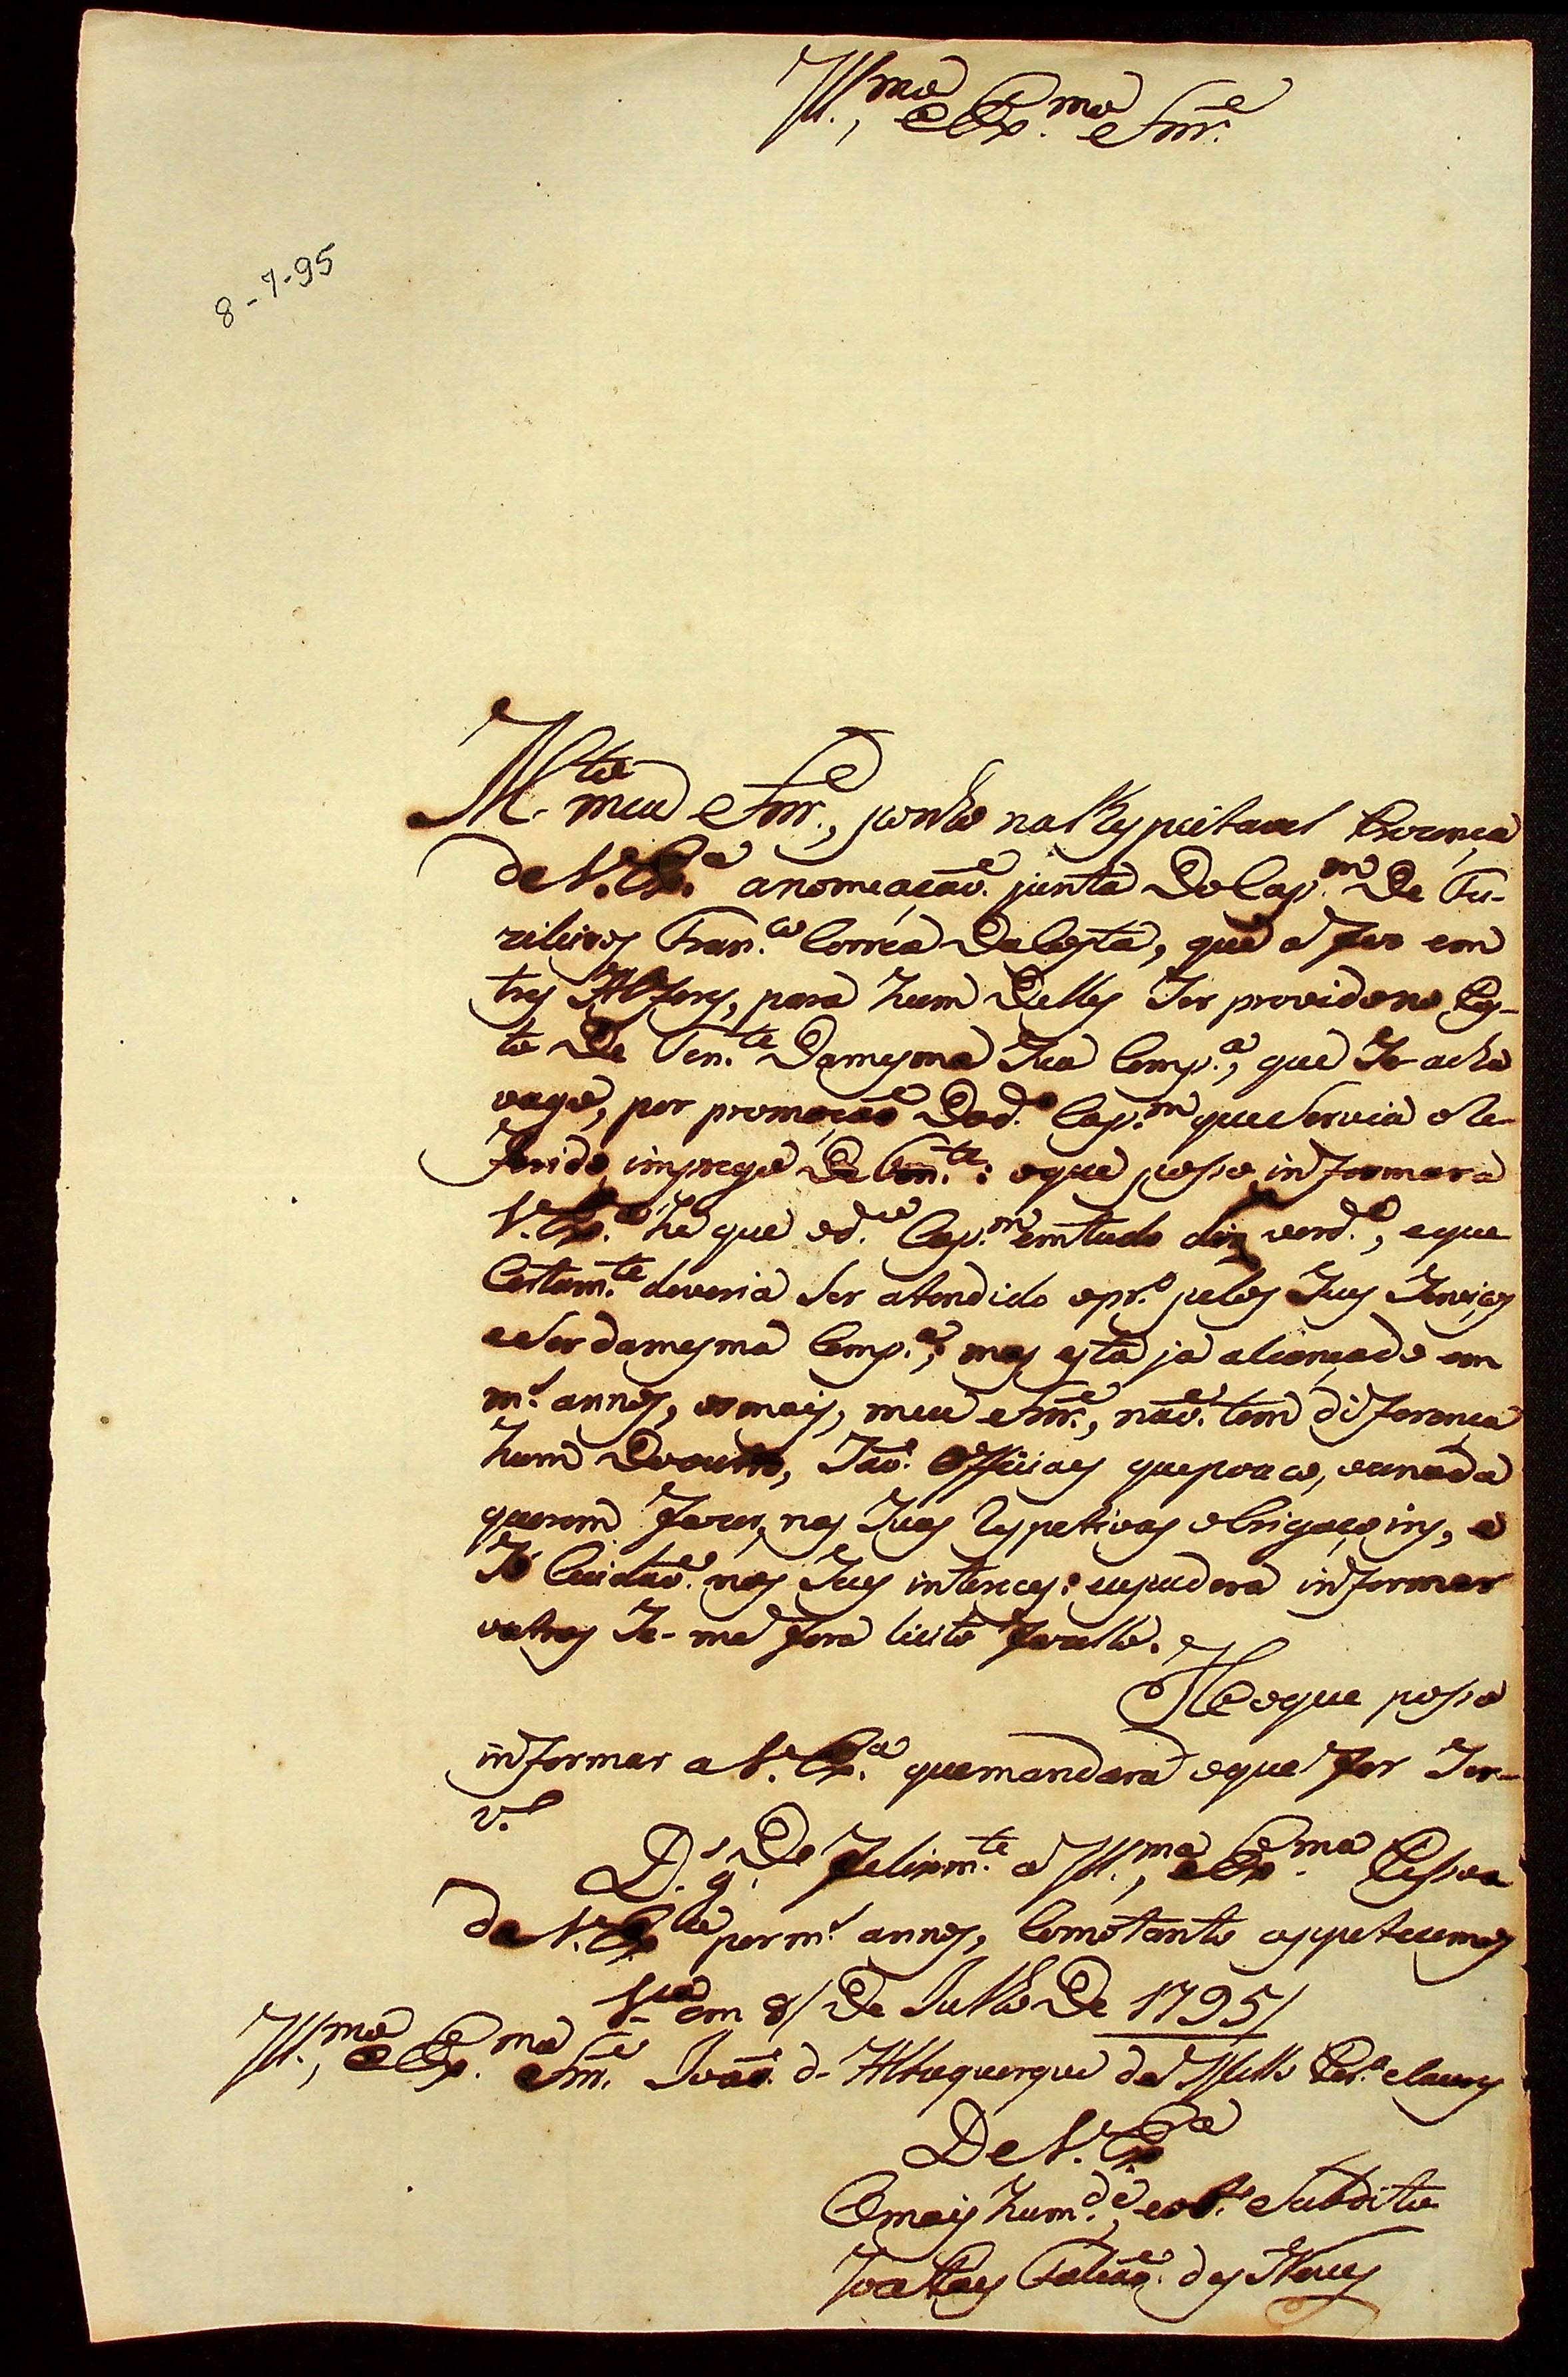 Ill.mo, e Ex.mo Snr.
8-7-95
M.to meu Snr., ponho na Respeitavel Prezença
de V. Ex.a a nomeação junta Do Cap.m De Fu-
zileiros Fran.co Corrêa Da Costa, que a fes em
tres Alferes, para hum Delles ser provido no Pos-
to De Ten.te Da mesma sua Comp.a, que se acha
vago, por promoção Do d.o Cap.m que servia o Re-
ferido emprego De Ten.te: o que posso informar a
V. Ex.a hé que o d.o Cap.m em tudo diz verd.e, e que
Certam.te deveria ser atendido o pr.o pelos seus serviços
e ser da mesma Comp.a; mas está já alcançado em
m.s annos, os mais, meu Snr., não tem diferença
hum Do outro, são Officiaes que pouco, ou nada
querem fazer, nas suas respetivas obrigaçoins, e
só Cuidão nos seus intereces: eu pudera informar
outras se-me fora licito fazello.
He o que posso
informar a V. Ex.a que mandará o que for ser-
v.o
D.s g.De felizm.te a Ill.ma, e Ex.ma Pessoa
de V. Ex.cia por m.s annos, Como tanto appetecemos
V.a em 8/ De Julho De 1795/
Ill.mo, e Ex.mo Snr. João d- Albuquerque de Mello Per.a e Caceres
De V. Ex.a
O mais hum.de, e ob.te Subdito
Joze Paes Falcão das Neves